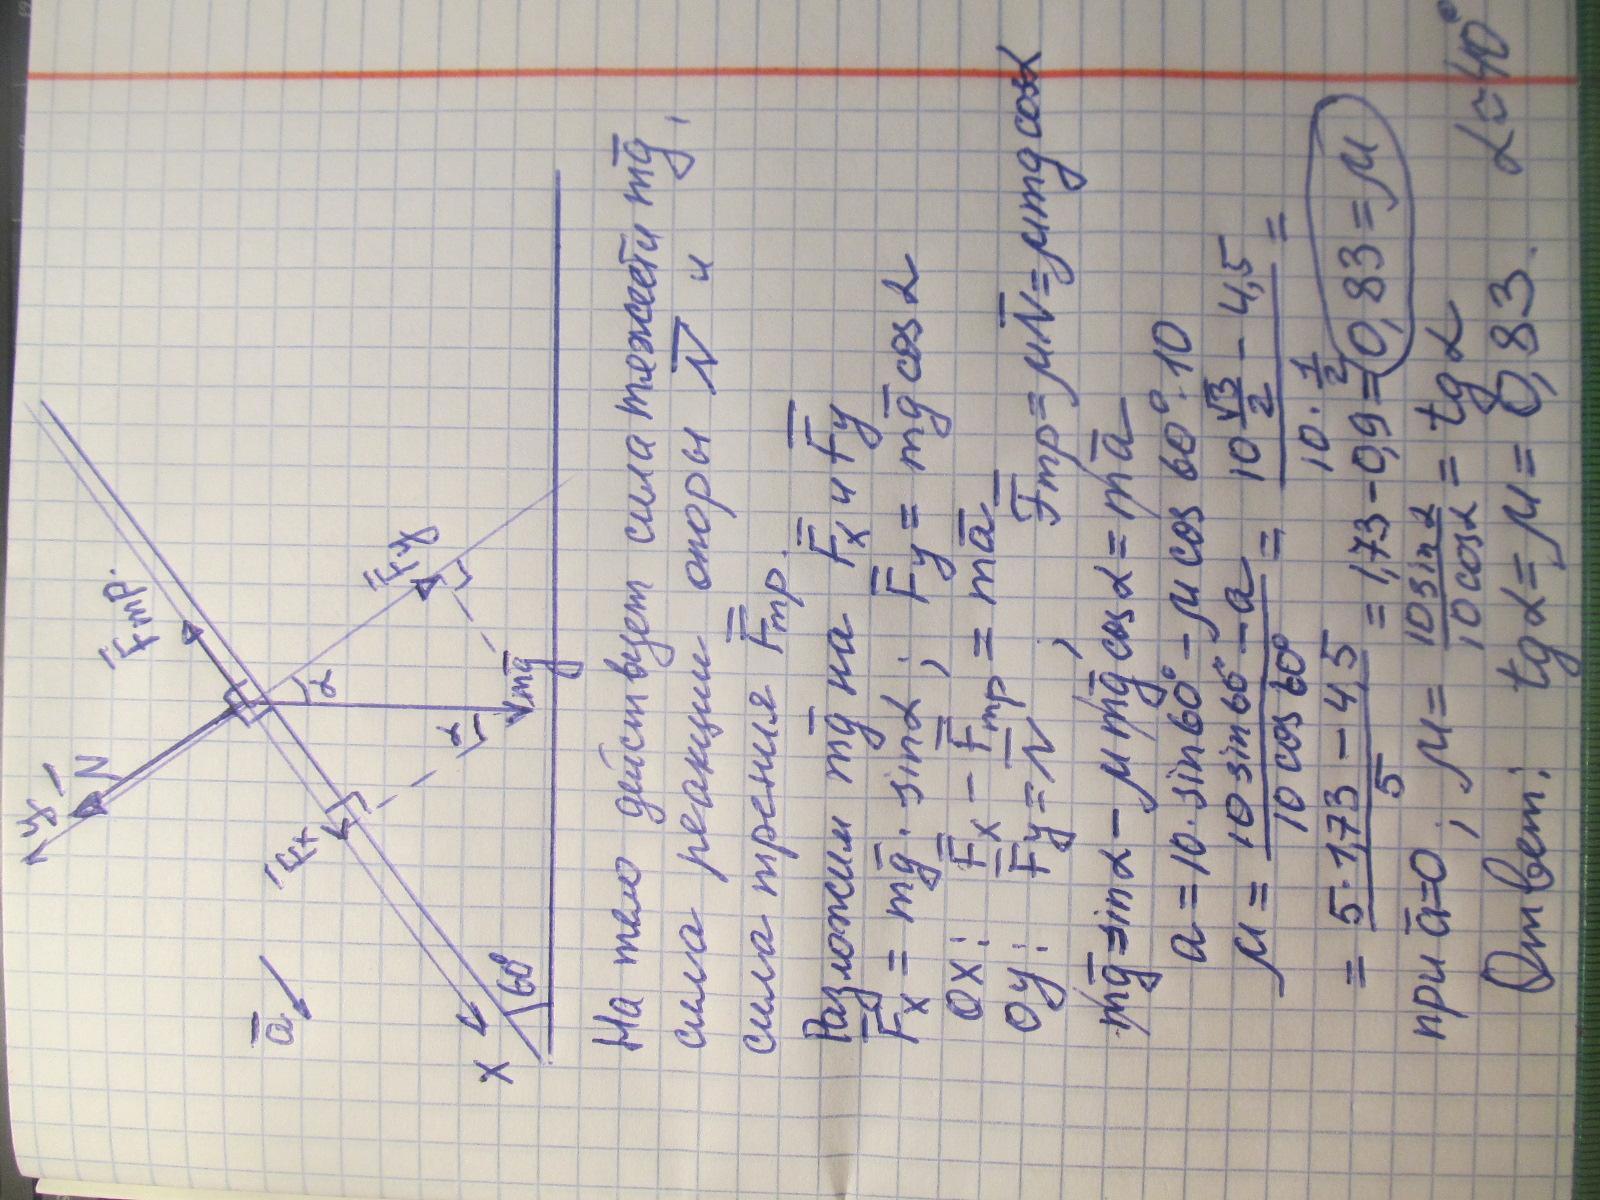 y
N̄
F̄тр.
ā
F̄x
α
F̄y
α
m̄g
X
60°
На тело действует сила тяжести m̄g,
сила реакции опоры N̄ и
сила трения F̄тр.
Разложим m̄g на F̄x и F̄y
F̄x = m̄g · sinα ; F̄y = m̄g cosα
OX: F̄x - F̄тр = mā
Oy: F̄y = N̄ ; F̄тр = μN̄ = μmg cosα
m̄g sinα - μm̄g cosα = mā
a = 10 · sin60° - μ cos 60° · 10
μ = (10 sin60° - a) / (10 cos 60°) = (10 √3/2 - 4,5) / (10 · 1/2) =
= (5 · 1,73 - 4,5) / 5 = 1,73 - 0,9 = 0,83 = μ
при ā=0 ; μ = 10 sinα / 10 cosα = tgα
Ответ: tgα = μ = 0,83. α ≈ 40°